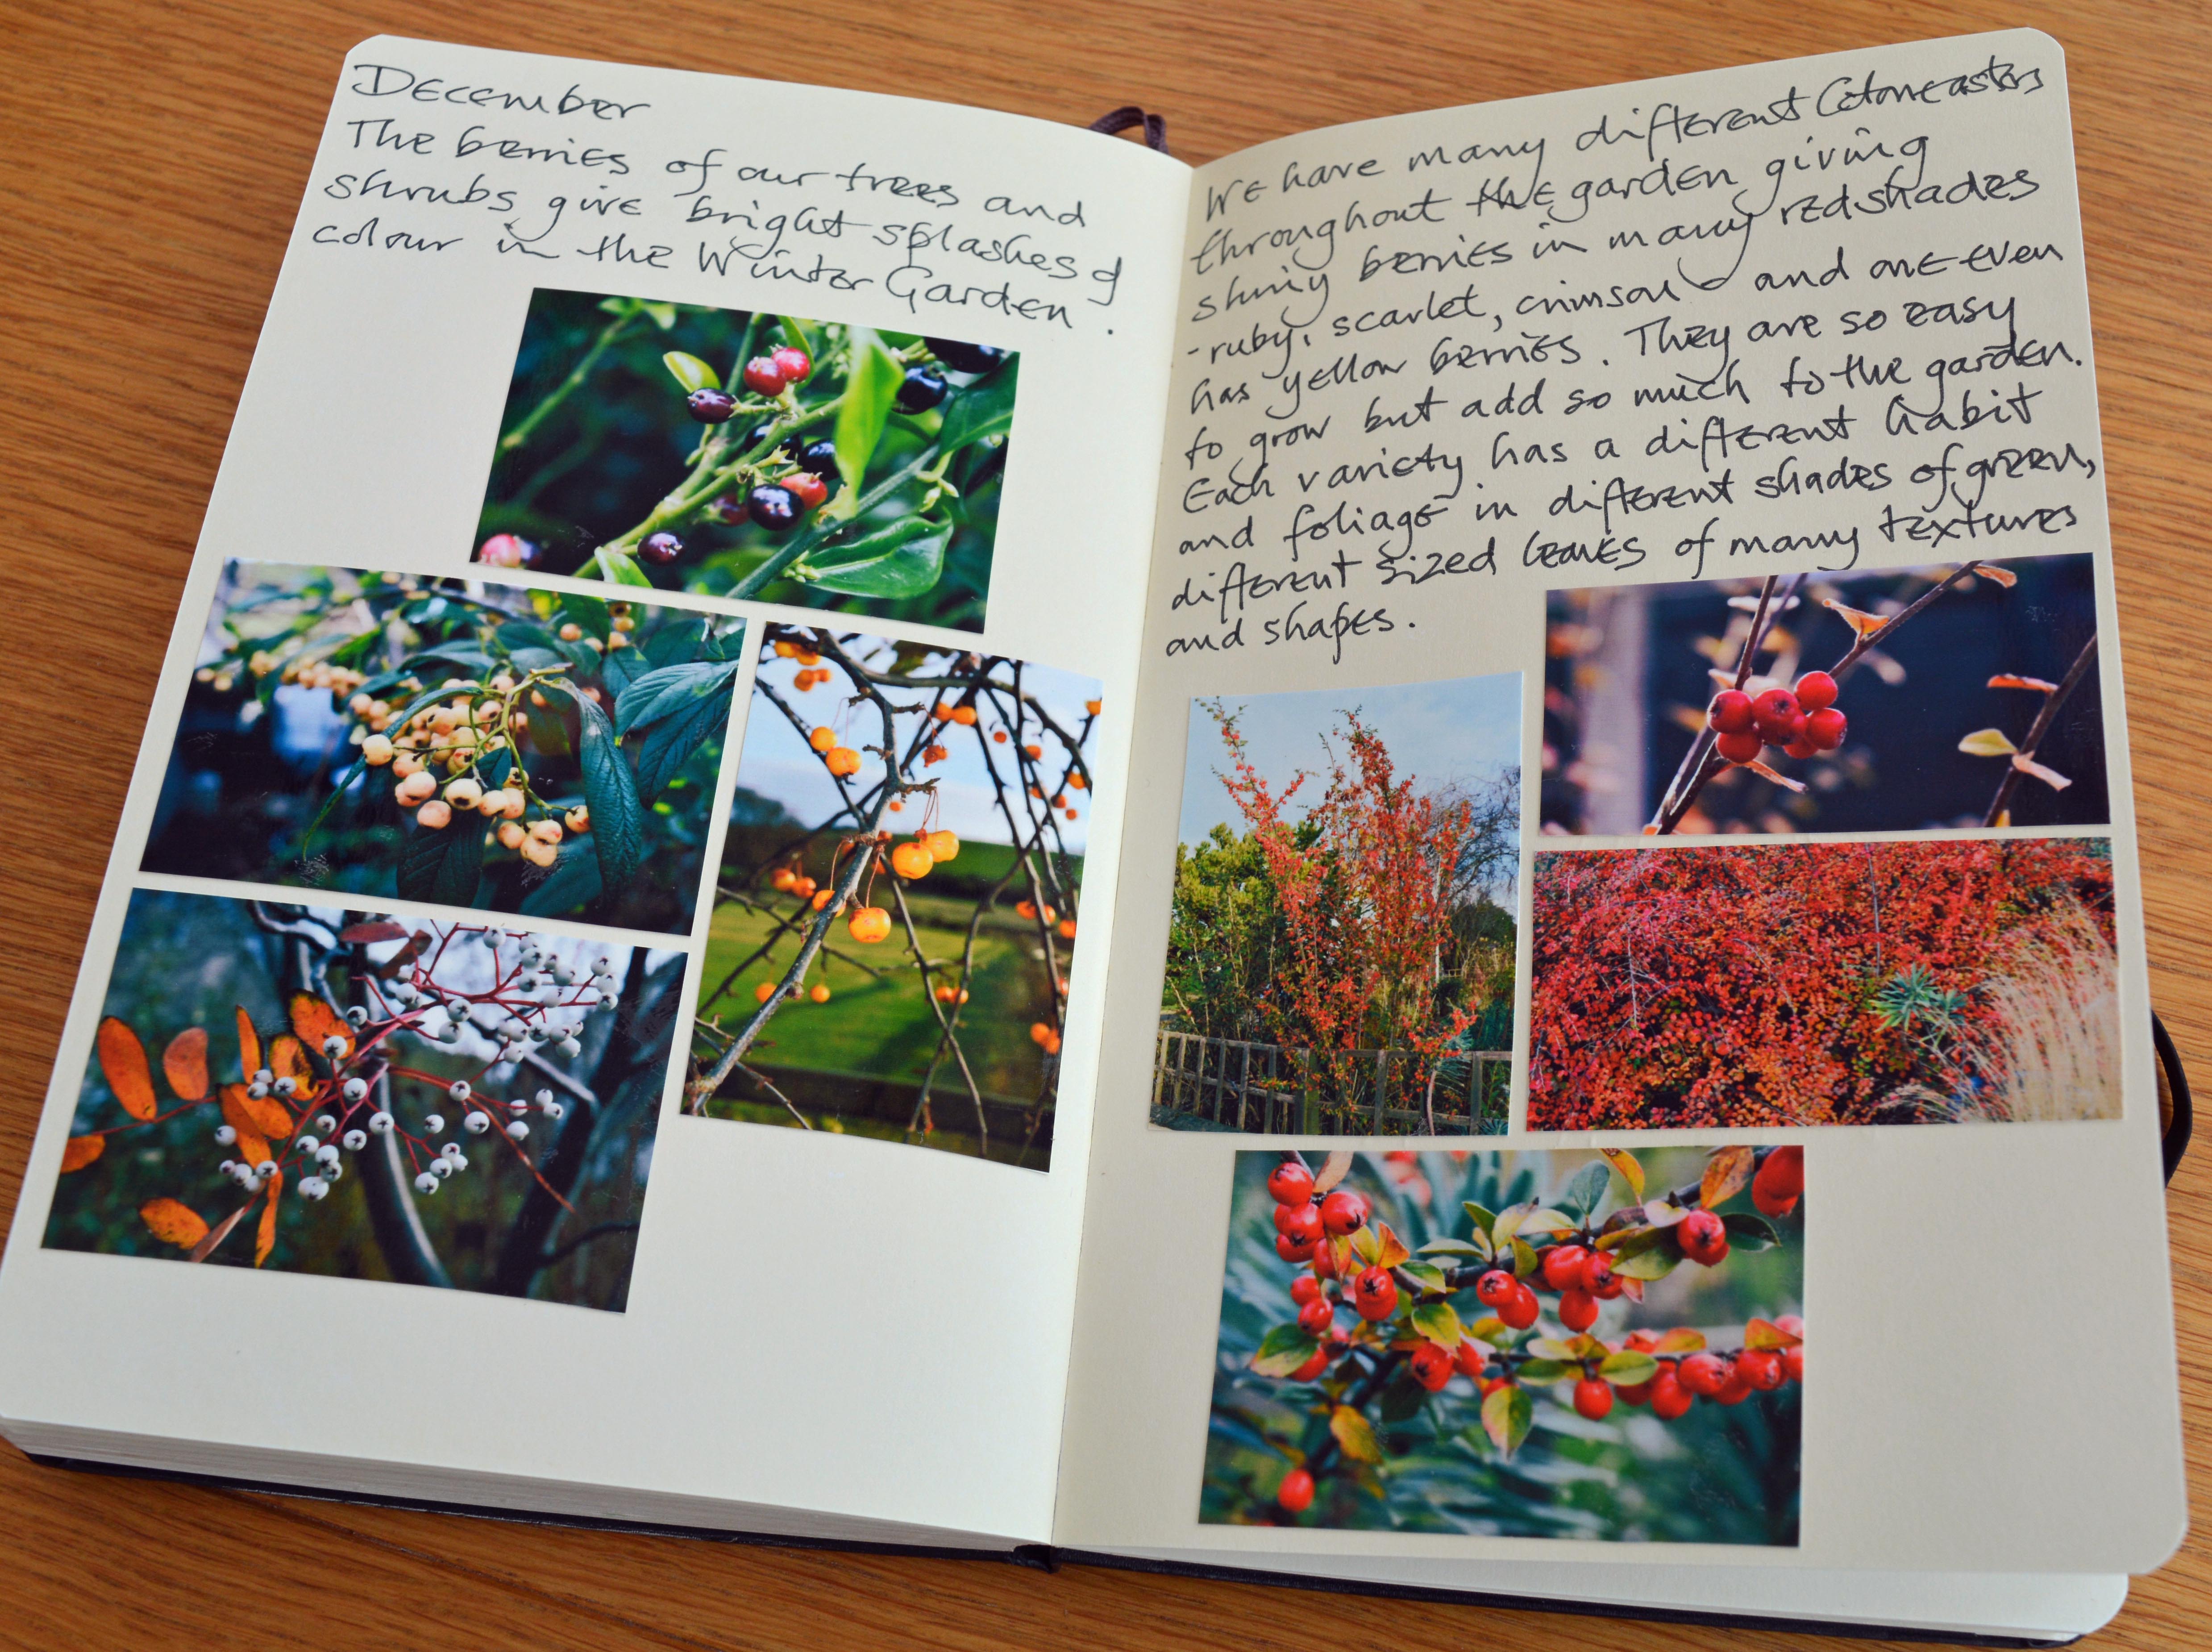 December
The berries of our trees and
shrubs give bright splashes of
colour in the Winter Garden.
We have many different Cotoneasters
throughout the garden giving
shiny berries in many red shades
- ruby, scarlet, crimson - and one even
has yellow berries. They are so easy
to grow but add so much to the garden.
Each variety has a different habit
and foliage in different shades of green,
different sized leaves of many textures
and shapes.